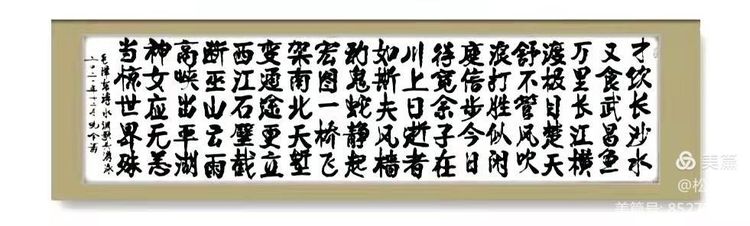 才饮长沙水
又食武昌鱼
万里长江横
渡极目楚天
舒不管风吹
浪打胜似闲
庭信步今日
得宽余子在
川上曰逝者
如斯夫风樯
动龟蛇静起
宏图一桥飞
架南北天堑
变通途更立
西江石壁截
断巫山云雨
高峡出平湖
神女应无恙
当惊世界殊
毛泽东诗水调歌头游泳
美篇
@松
美篇号: 8527